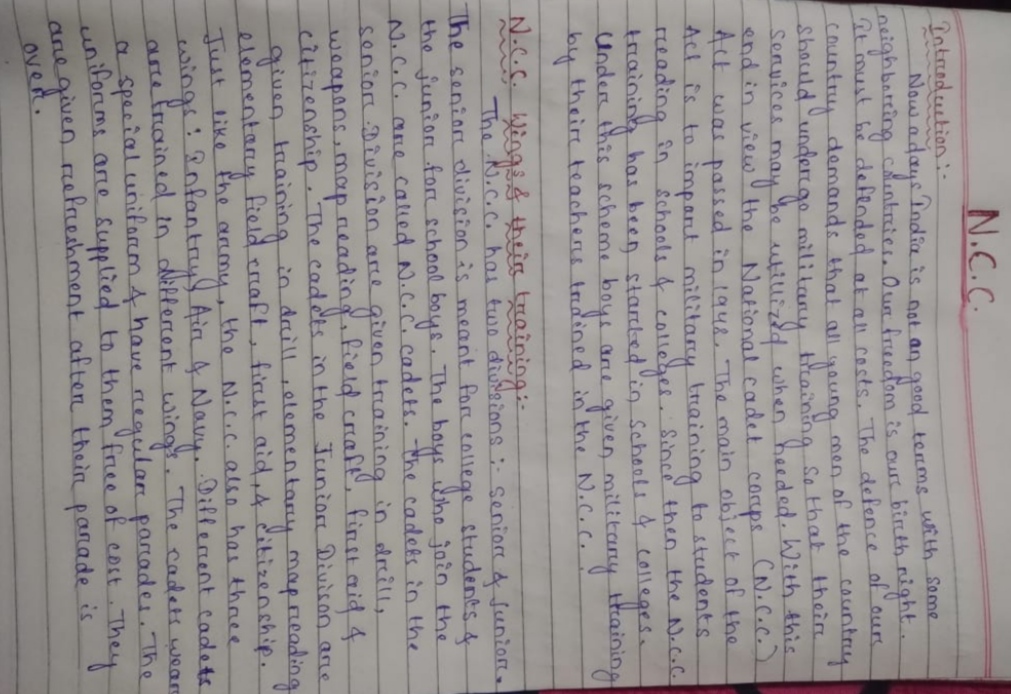 N.C.C.
Introduction:-
Now a days India is not an good terms with some
neighboring countries. Our freedom is our birth right.
It must be defended at all costs. The defence of ours
country demands that all young men of the country
should undergo military training so that their
services may be utilized when needed. With this
end in view the National cadet corps (N.C.C.)
Act was passed in 1948. The main object of the
Act is to impart military training to students
reading in schools & colleges. Since then the N.C.C.
training has been started in schools & colleges.
Under this scheme boys are given military training
by their teachers trained in the N.C.C.
N.C.C. Wings & their training:-
The N.C.C. has two divisions :- Senior & Junior.
The senior division is meant for college students &
the junior for school boys. The boys who join the
N.C.C. are called N.C.C. cadets. The cadets in the
senior Division are given training in drill,
weapons, map reading, field craft, first aid &
citizenship. The cadets in the Junior Division are
given training in drill, elementary map reading
elementary field craft, first aid, & citizenship.
Just like the army, the N.C.C. also has three
wings : Infantry, Air & Navy. Different cadets
are trained in different wings. The cadets wear
a special uniform & have regular parades. The
uniforms are supplied to them free of cost. They
are given refreshment after their parade is
over.